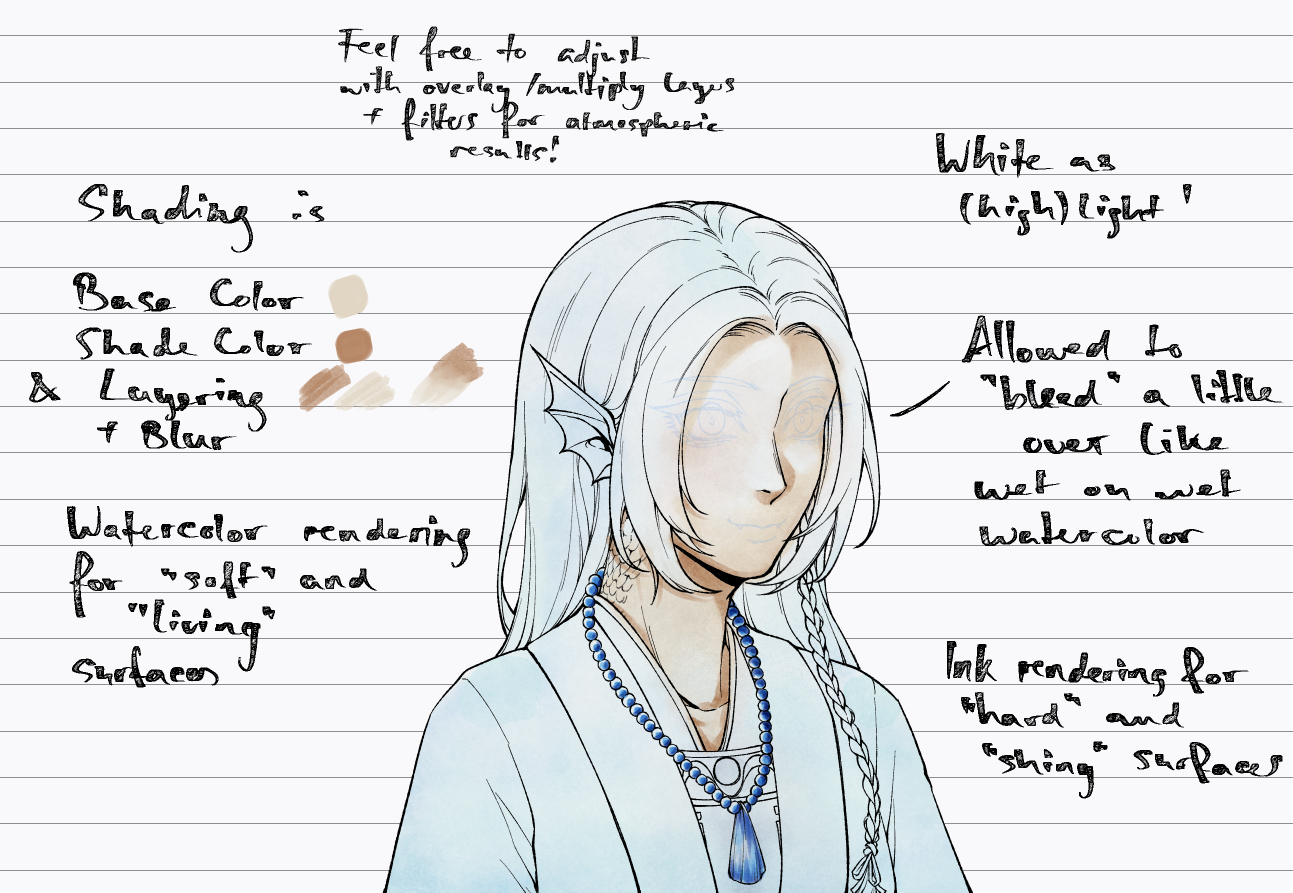 Feel free to adjust
with overlay/multiply layers
+ filters for atmospheric
results!
Shading is
Base Color
Shade Color
& Layering
+ Blur
Watercolor rendering
for "soft" and
"living"
surfaces
White as
(high)light!
Allowed to
"bleed" a little
over like
wet on wet
watercolor
Ink rendering for
"hard" and
"shiny" surfaces